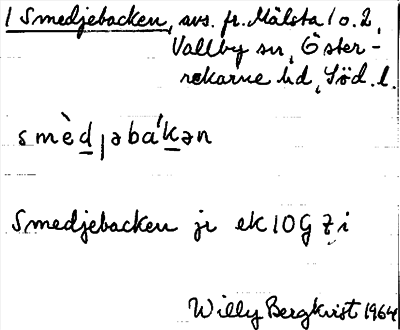 1 Smedjebacken, avs. fr. Målsta 1 o. 2,
Vallby sn, Öster-
rekarne hd, Söd. l.
smèd̲jəbák̲ən
Smedjebacken jr ek 10G 7i
Willy Bergkvist 1964